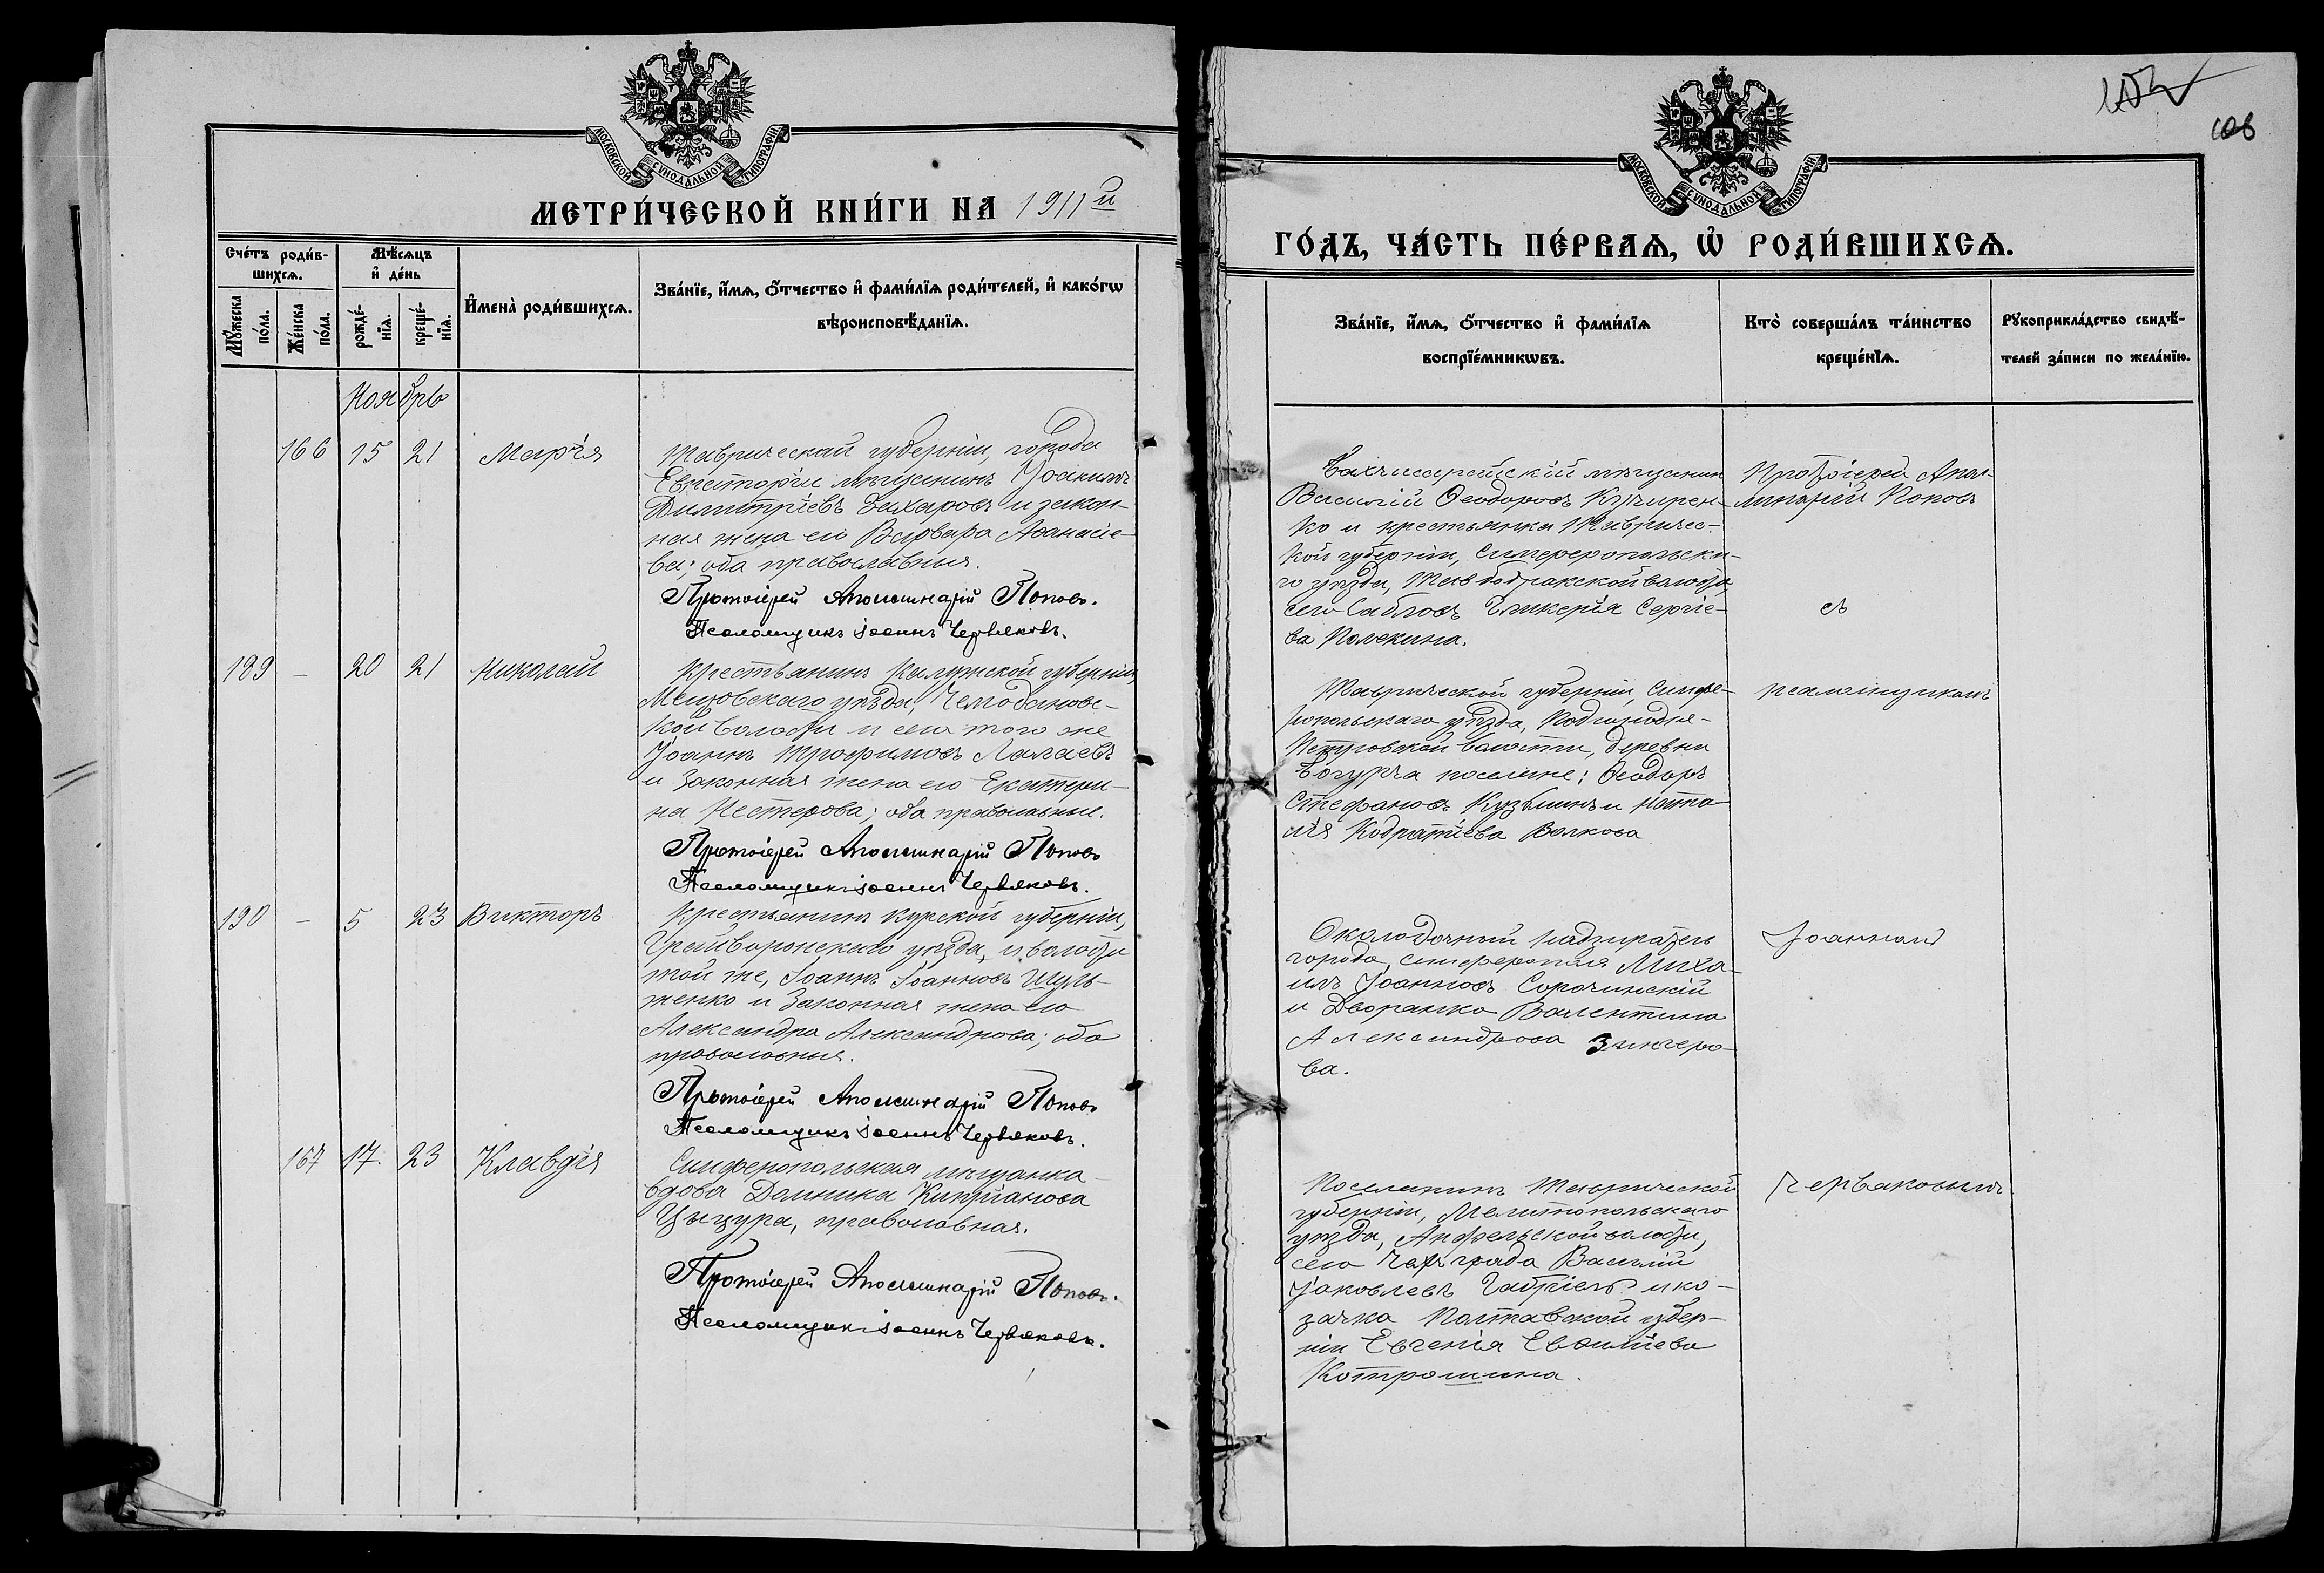 МОСКОВСКОЙ СУНОДАЛЬНОЙ ТИПОГРАФІИ
МЕТРИ́ЧЕСКОЙ КНИ́ГИ НА 1911й
Сче́тъ роди́в-
шихсѧ.
Мѣ́сѧцъ
и҆ де́нь
Мꙋ́жеска по́ла.
Же́нска по́ла.
рожде́-
нїѧ.
креще́-
нїѧ.
И҆мена̀ роди́вшихсѧ.
Зва́нїе, и҆́мѧ, ѻ҆́тчество и҆ фами́лїѧ роди́телей, и҆ како́гѡ
вѣроисповѣ́данїѧ.
Ноябрь
166 15 21 Марія
Таврической губерніи, города
Евпаторіи мѣщанинъ Іоакимъ
Димитріевъ Захаровъ и закон-
ная жена его Варвара Аѳанасіе-
ва; оба православныя.
Протоіерей Аполлинарій Поповъ.
Псаломщикъ Іоаннъ Червяковъ.
189 — 20 21 Николай
Крестьянинъ Калужской губерніи,
Мещовскаго уѣзда, Чемодановс-
кой волости и села того же
Іоаннъ Трофимовъ Лалаевъ
и законная жена его Екатери-
на Нестерова; оба православные.
Протоіерей Аполлинарій Поповъ
Псаломщикъ Іоаннъ Червяковъ.
190 — 5 23 Викторъ
Крестьянинъ Курской губерніи,
Грайворонскаго уѣзда, и волости
той же, Іоаннъ Іоанновъ Шуль-
женко и законная жена его
Александра Александрова; оба
православныя.
Протоіерей Аполлинарій Поповъ
Псаломщикъ Іоаннъ Червяковъ.
167 17. 23 Клавдія
Симферопольская мѣщанка
вдова Домника Кипріанова
Цыцура, православная.
Протоіерей Аполлинарій Поповъ.
Псаломщикъ Іоаннъ Червяковъ.
108
МОСКОВСКОЙ СУНОДАЛЬНОЙ ТИПОГРАФІИ
ГО́ДЪ, ЧА́СТЬ ПЕ́РВАѦ, Ѡ҆ РОДИ́ВШИХСѦ.
Зва́нїе, и҆́мѧ, ѻ҆́тчество и҆ фами́лїѧ
воспрїе́мникѡвъ.
Кто̀ соверша́лъ та́инство
креще́нїѧ.
Рꙋкоприкла́дство свидѣ́-
телей за́писи по жела́нїю.
Бахчисарайскій мѣщанинъ
Василій Ѳеодоровъ Кучерен-
ко и крестьянка Тавричес-
кой губерніи, Симферопольска-
го уѣзда, волости,
села Сабловъ Гликерія Сергіе-
ва Полекина.
Протоіерей Апол-
линарій Поповъ
съ
Таврической губерніи, Симфе-
ропольскаго уѣзда, Подгородне-
Петровской волости, деревни
Богурча поселяне: Ѳеодоръ
Стефановъ Кузьминъ и Ната-
лія Кодратіева Волкова
псаломщикомъ
Околодочный надзиратель
города Симферополя Миха-
илъ Іоанновъ Сорочинскій
и Дворянка Валентина
Александрова Зингеро-
ва.
Іоанномъ
Поселянинъ Таврической
губерніи, Мелитопольскаго
уѣзда, волости,
села Василій
Іаковлевъ Габріель и ко-
зачка Полтавской губер-
ніи Евгенія Евѳиміева
Котрошина.
Червяковымъ.